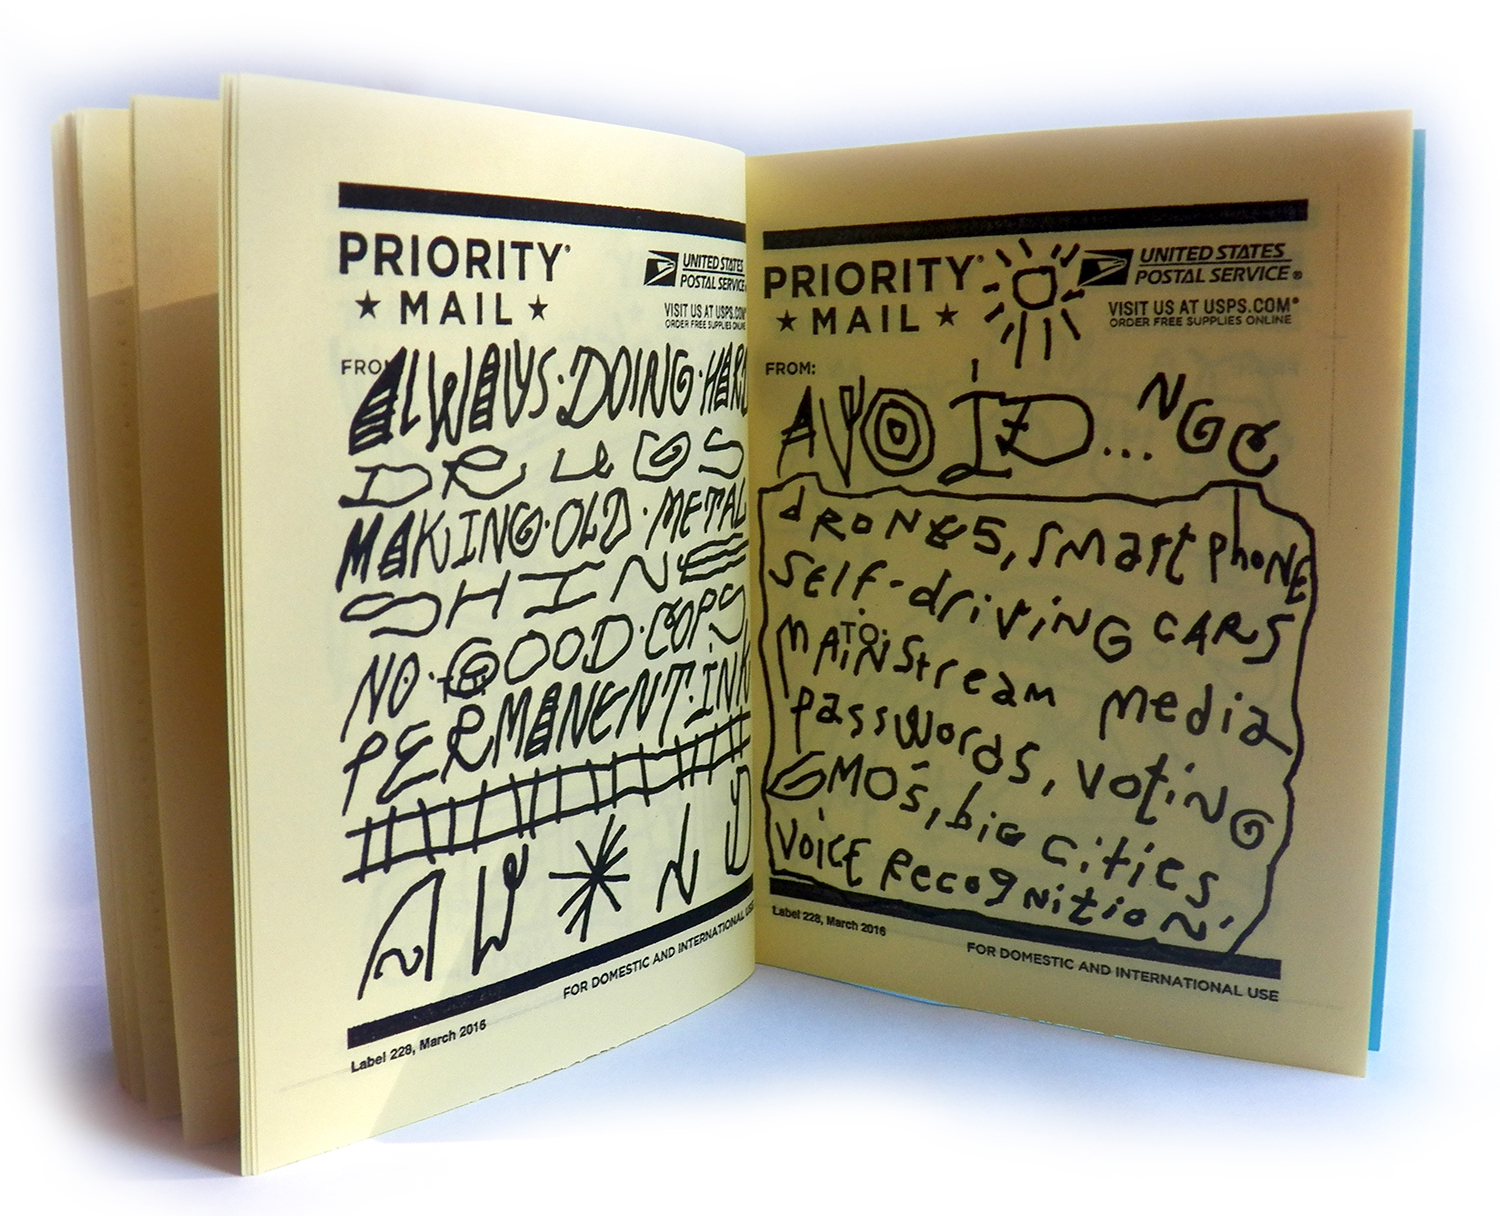 PRIORITY®
★ MAIL ★
UNITED STATES
POSTAL SERVICE
VISIT US AT USPS.COM®
ORDER FREE SUPPLIES ONLINE
FROM
ALWAYS·DOING·HARD
DRUGS
MAKING·OLD·METAL
SHINE
NO·GOOD·COPS
PERMANENT·INK
Label 228, March 2016
FOR DOMESTIC AND INTERNATIONAL USE
PRIORITY®
★ MAIL ★
UNITED STATES
POSTAL SERVICE®
VISIT US AT USPS.COM®
ORDER FREE SUPPLIES ONLINE
FROM:
AVOID... NGC
dRONES, smartphONE
SElf-driviNG CARS
TO:
MAiNStream media
passwords, votiNG
GMO's, biG cities,
voicE RecogNitioN
Label 228, March 2016
FOR DOMESTIC AND INTERNATIONAL USE